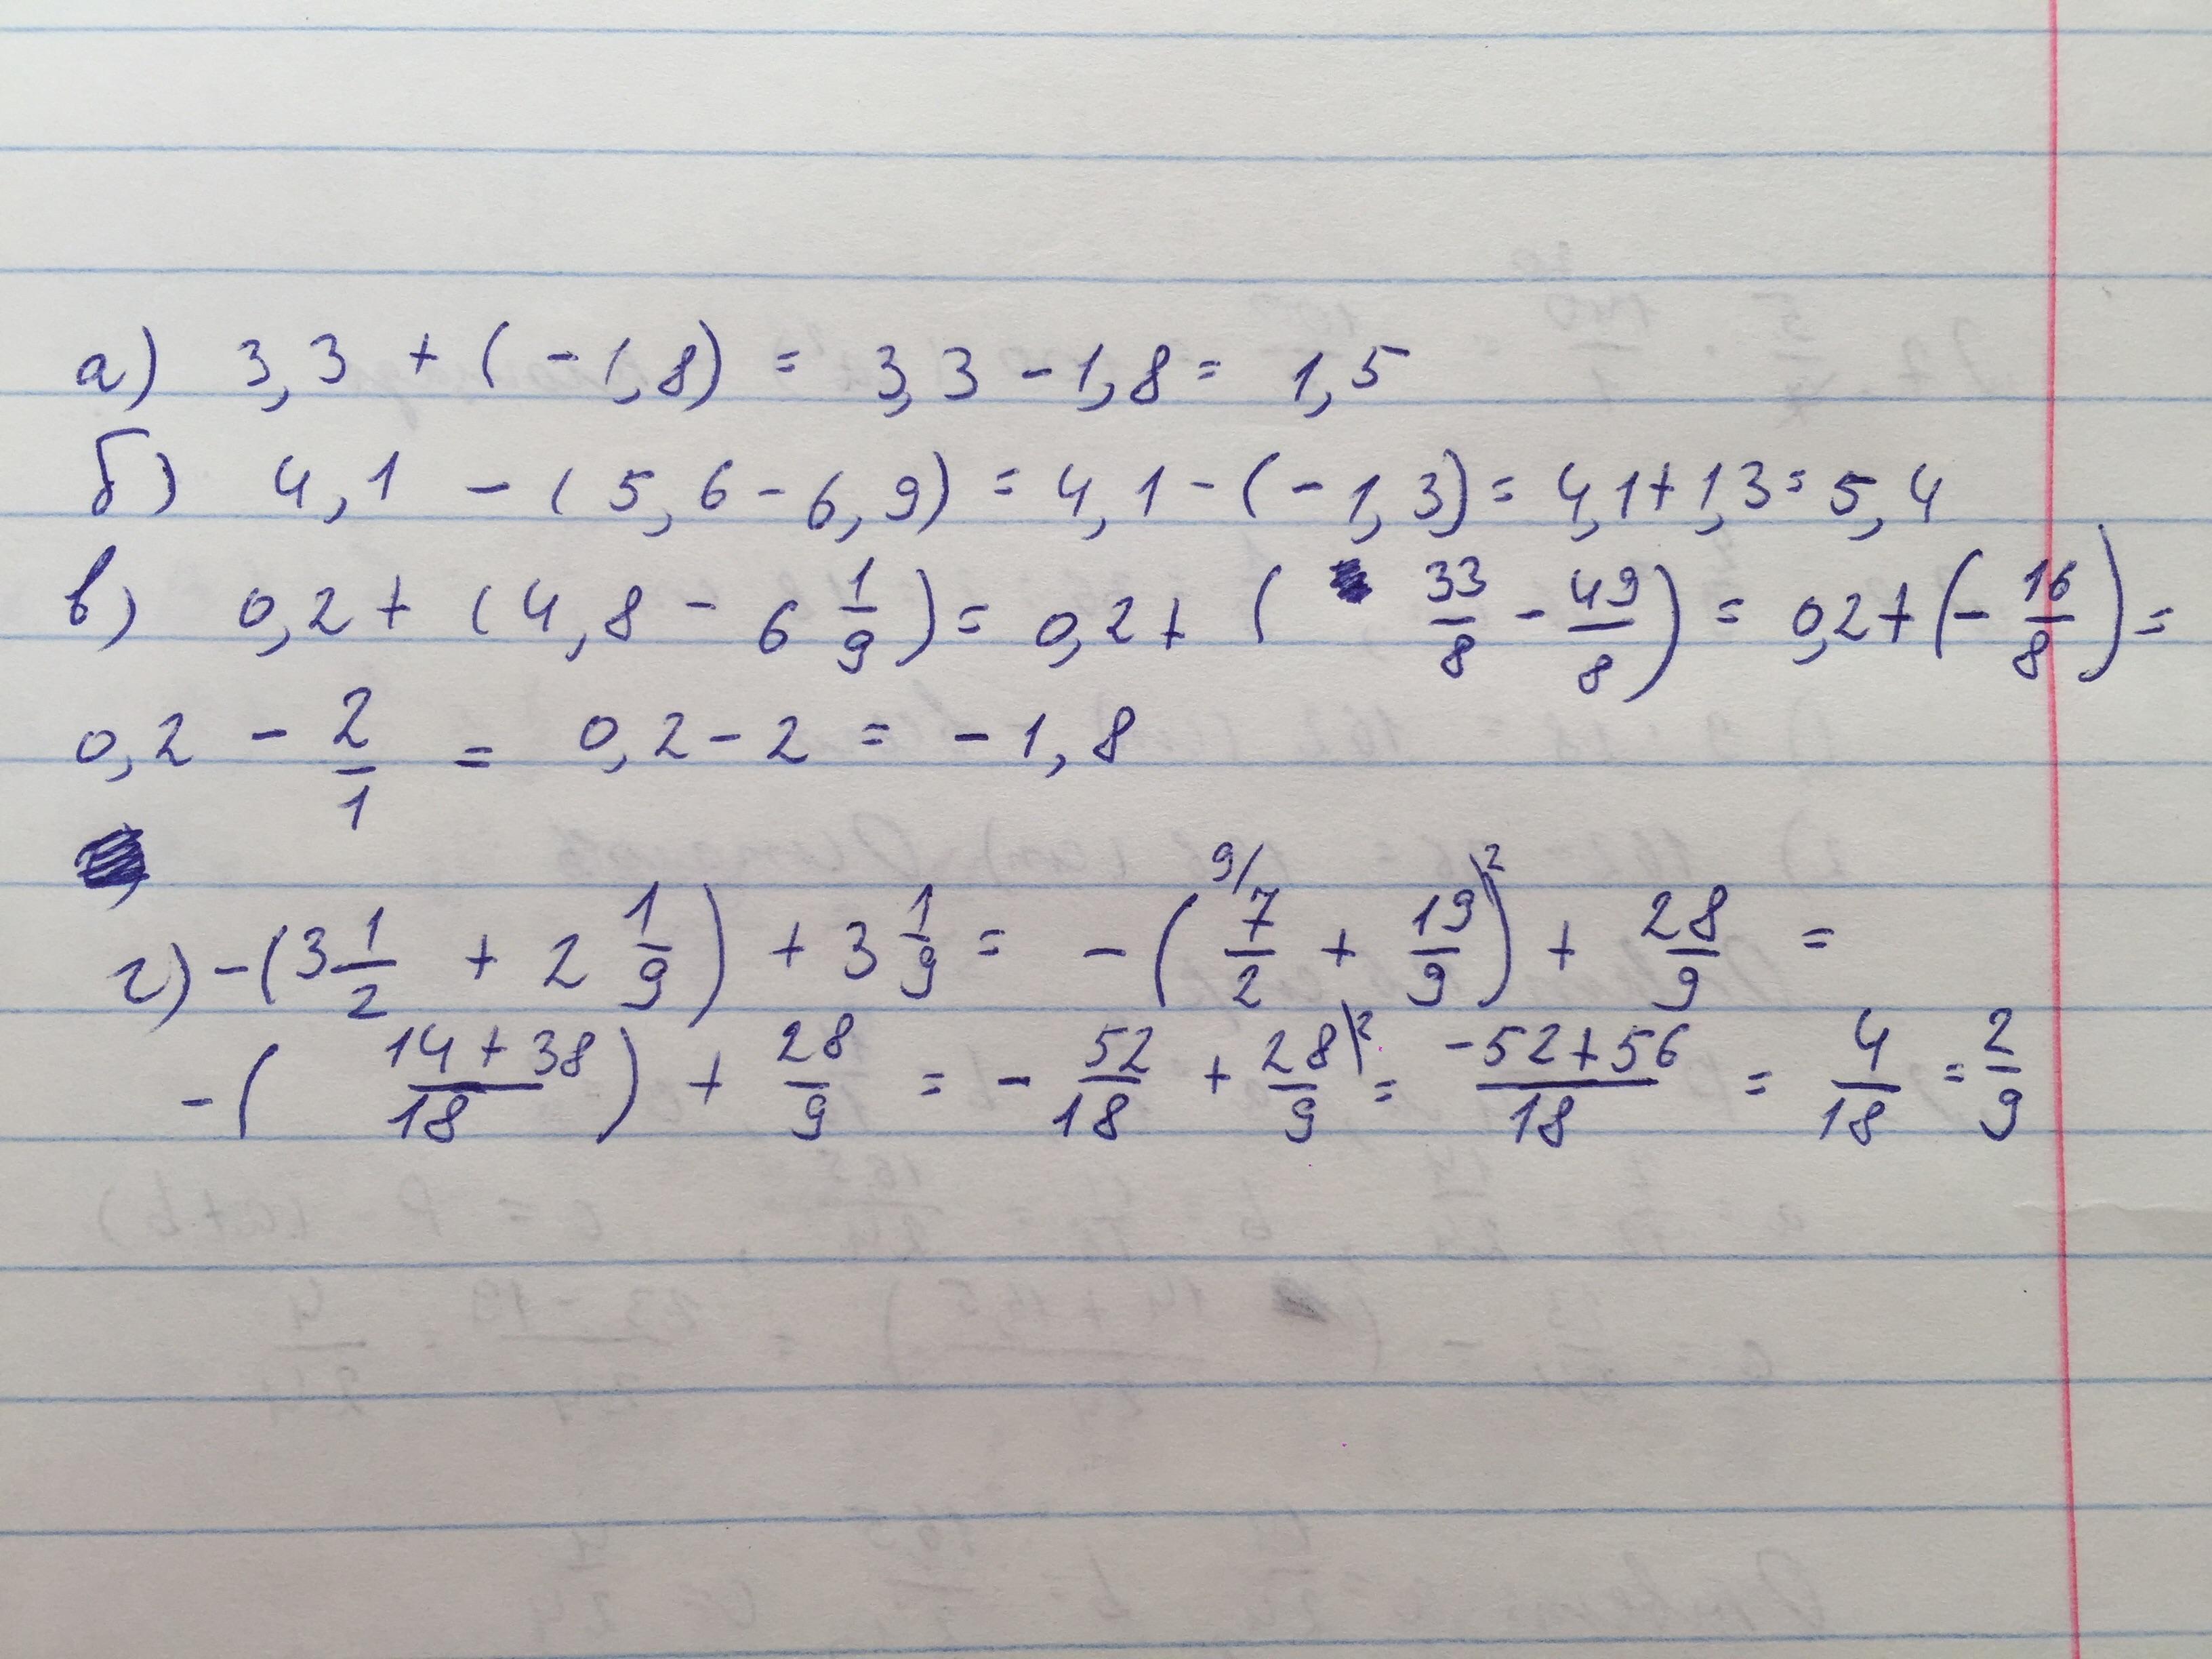 а) 3,3 + (-1,8) = 3,3 - 1,8 = 1,5
б) 4,1 - (5,6 - 6,9) = 4,1 - (-1,3) = 4,1 + 1,3 = 5,4
в) 0,2 + (4,8 - 6 1/9) = 0,2 + (33/8 - 49/8) = 0,2 + (- 16/8) =
0,2 - 2/1 = 0,2 - 2 = -1,8
г) -(3 1/2 + 2 1/9) + 3 1/9 = -(9/ 7/2 + 19/9 \2) + 28/9 =
-(14+38/18) + 28/9 = - 52/18 + 28/9 \2 = -52+56/18 = 4/18 = 2/9